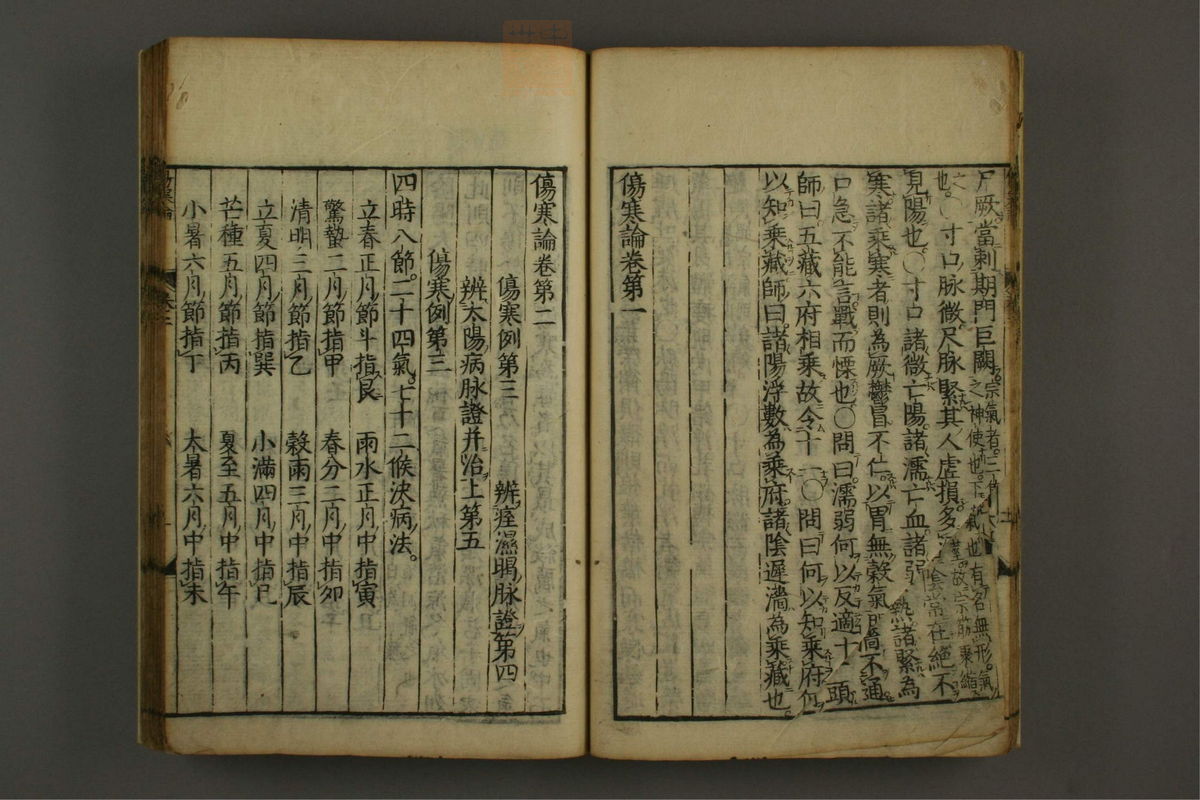 尸厥當刺期門巨闕宗氣者三焦
之神使也下氣也有名無形氣
也〇寸口脉微尺脉緊其人虛損多陰常在絕不
見陽也〇寸口諸微亡陽諸濡亡血諸弱熱諸緊為
寒諸乘寒者則為厥鬱冒不仁以胃無穀氣不通
口急不能言戰而慄也〇問曰濡弱何以反適十一頭
師曰五藏六府相乘故令十一〇問曰何以知乘府何
以知乘藏師曰諸陽浮數為乘府諸陰遲濇為乘藏也
傷寒論卷第一
傷寒論卷第二
傷寒例第三 辨痓濕暍脉證第四
辨太陽病脉證并治上第五
傷寒例第三
四時八節二十四氣七十二候決病法
立春正月節斗指艮 雨水正月中指寅
驚蟄二月節指甲 春分二月中指卯
清明三月節指乙 穀雨三月中指辰
立夏四月節指巽 小滿四月中指巳
芒種五月節指丙 夏至五月中指午
小暑六月節指丁 大暑六月中指未